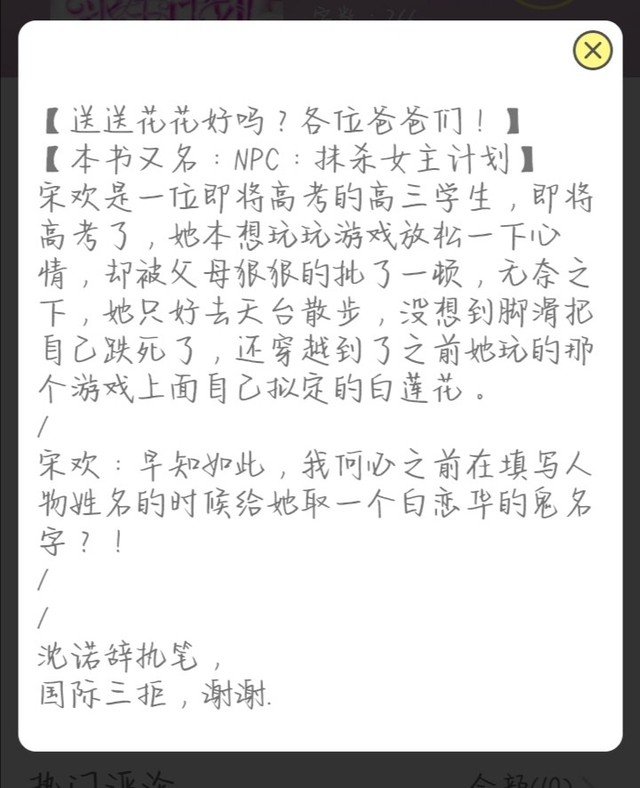 【送送花花好吗？各位爸爸们！】
【本书又名：NPC：抹杀女主计划】
宋欢是一位即将高考的高三学生，即将
高考了，她本想玩玩游戏放松一下心
情，却被父母狠狠的批了一顿，无奈之
下，她只好去天台散步，没想到脚滑把
自己跌死了，还穿越到了之前她玩的那
个游戏上面自己拟定的白莲花。
/
宋欢：早知如此，我何必之前在填写人
物姓名的时候给她取一个白恋华的鬼名
字？！
/
/
沈诺辞执笔，
国际三拒，谢谢.